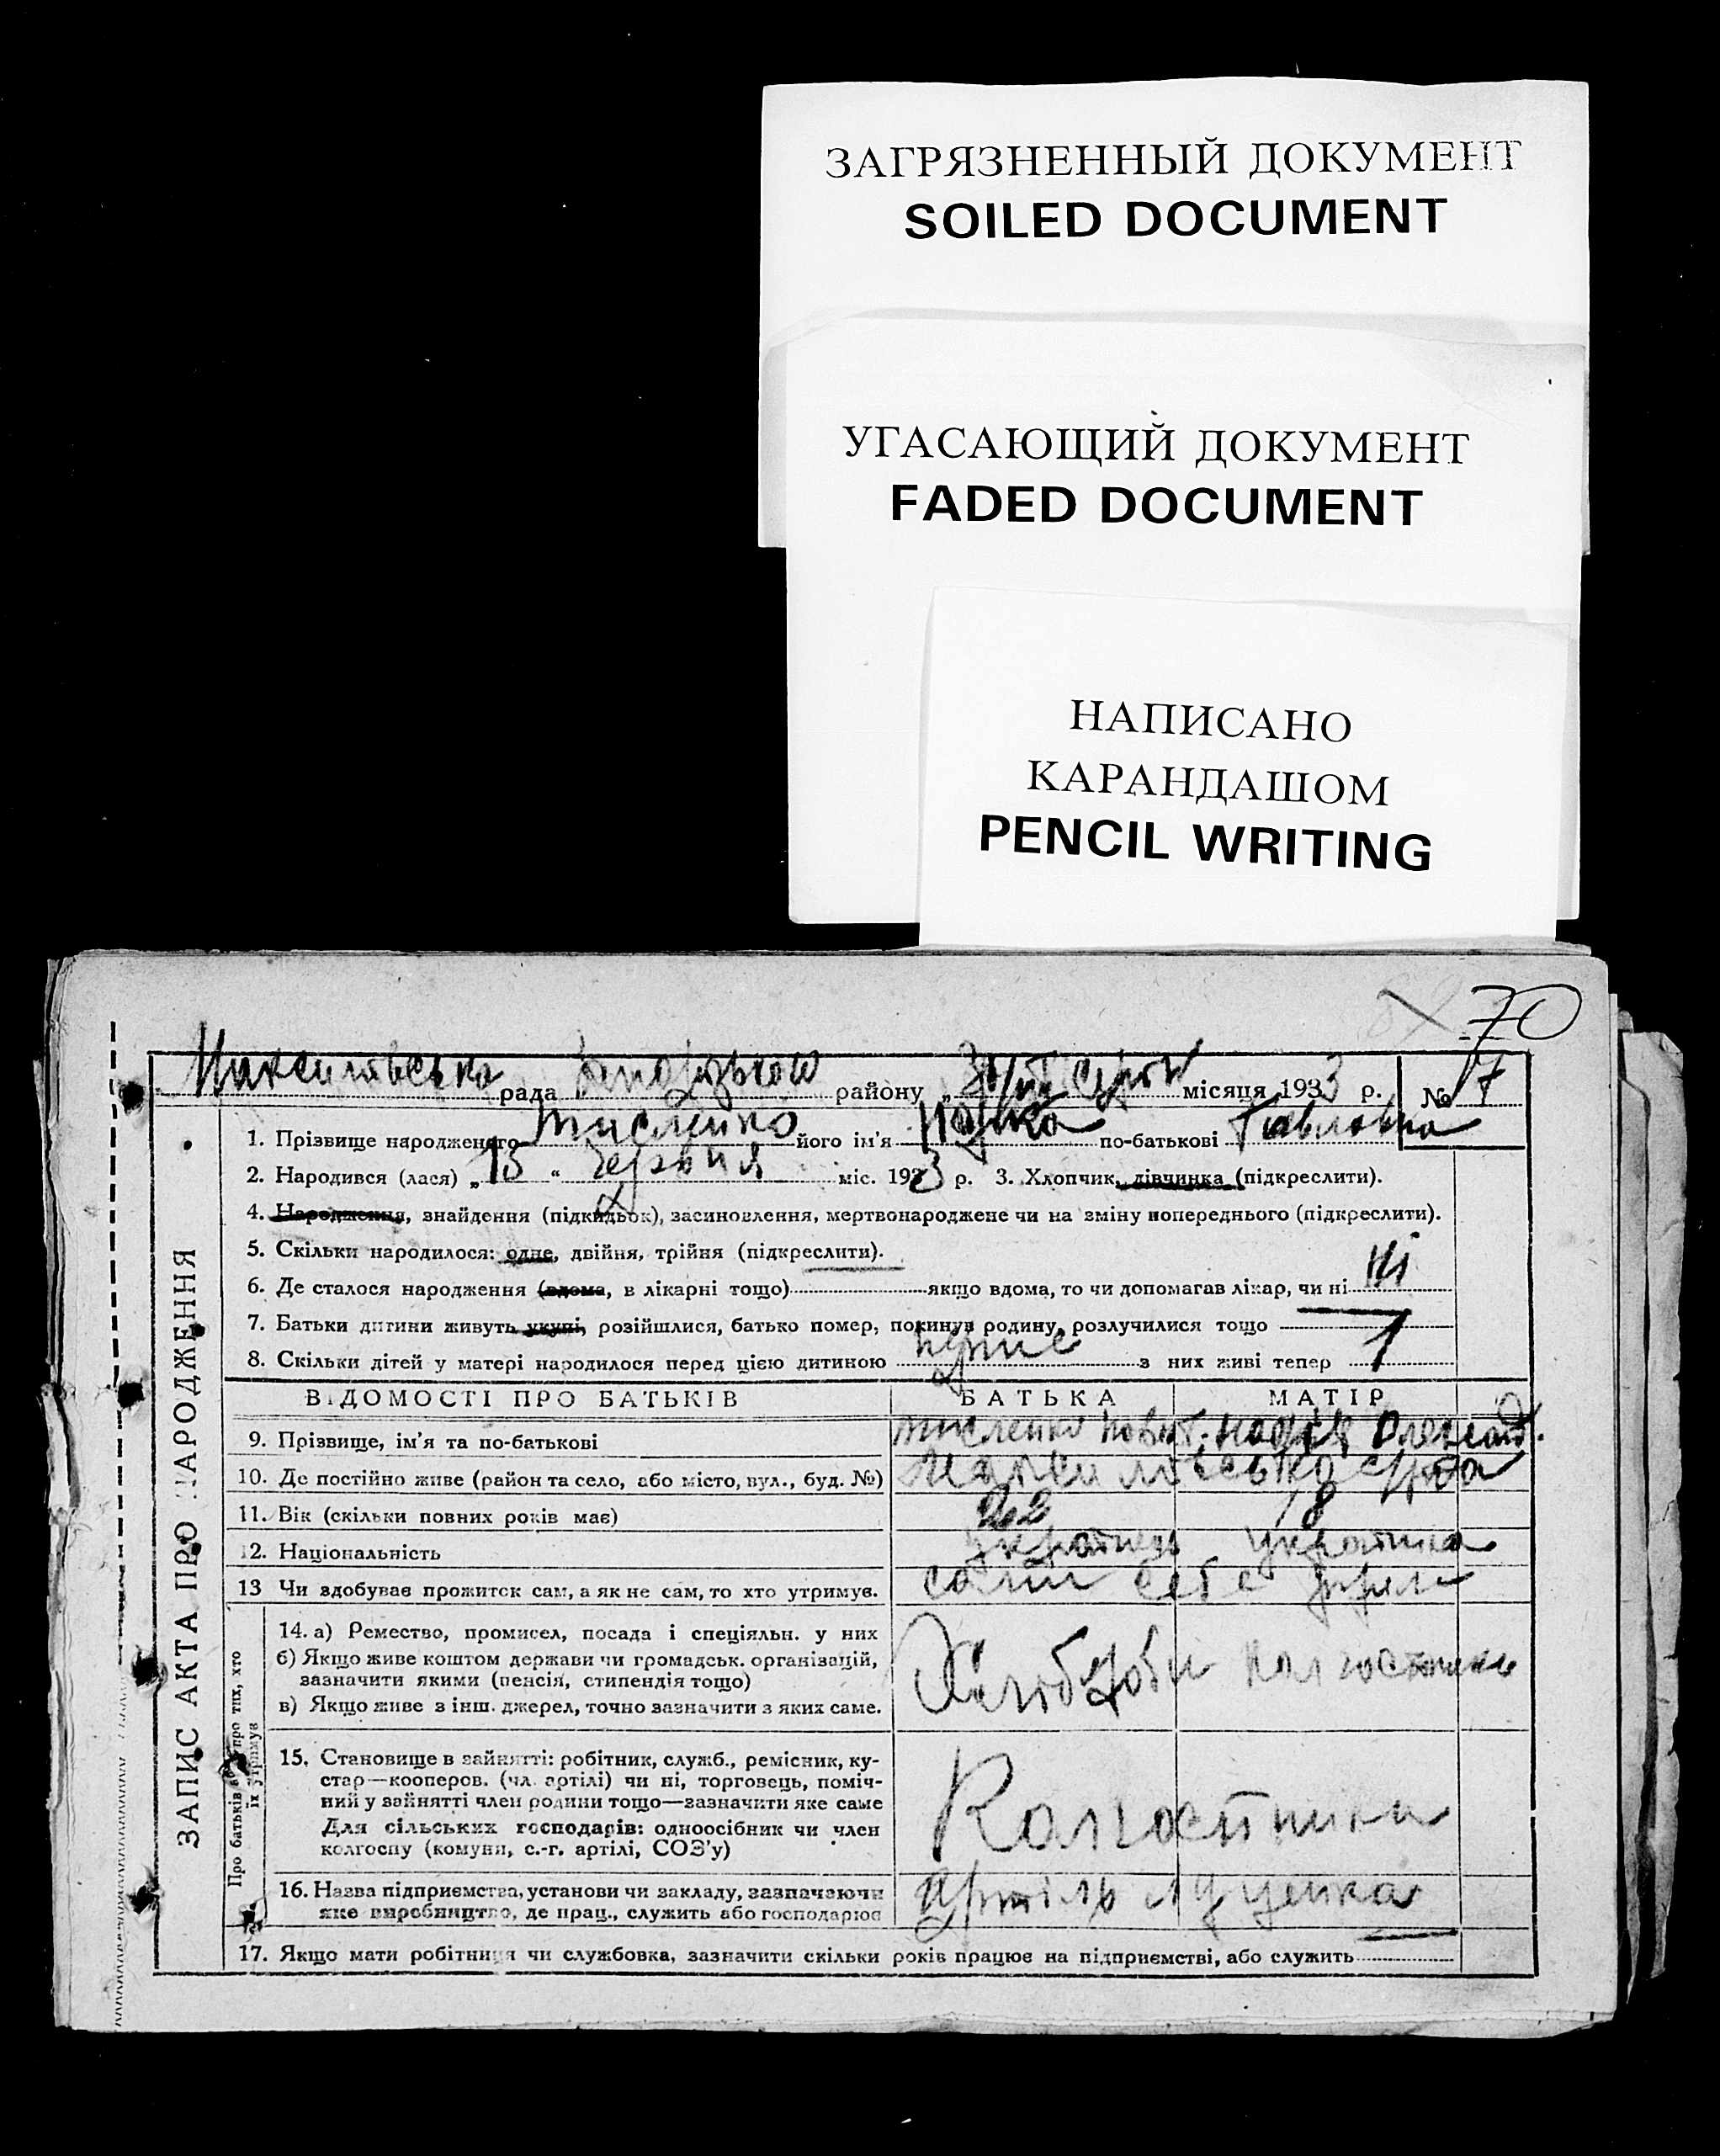 ЗАГРЯЗНЕННЫЙ ДОКУМЕНТ
SOILED DOCUMENT
УГАСАЮЩИЙ ДОКУМЕНТ
FADED DOCUMENT
НАПИСАНО
КАРАНДАШОМ
PENCIL WRITING
70
рада району „ місяця 1933 р. № 7
1. Прізвище народженого його ім'я по-батькові Павловна
2. Народився (лася) „15“ червня міс. 1933 р. 3. Хлопчик, дівчинка (підкреслити).
4. Народження, знайдення (підкидьок), засиновлення, мертвонароджене чи на зміну попереднього (підкреслити).
5. Скільки народилося: одне, двійня, трійня (підкреслити).
6. Де сталося народження (вдома, в лікарні тощо) якщо вдома, то чи допомагав лікар, чи ні ні
7. Батьки дитини живуть укупі, розійшлися, батько помер, покинув родину, розлучилися тощо
8. Скільки дітей у матері народилося перед цією дитиною перше з них живі тепер 1
ВІДОМОСТІ ПРО БАТЬКІВ БАТЬКА МАТІР
9. Прізвище, ім'я та по-батькові
10. Де постійно живе (район та село, або місто, вул., буд. №)
11. Вік (скільки повних років має) 22 18
12. Національність українець українка
13 Чи здобував прожиток сам, а як не сам, то хто утримує. сами себе
14. а) Ремество, промисел, посада і спеціяльн. у них
б) Якщо живе коштом держави чи громадськ. організацій,
зазначити якими (пенсія, стипендія тощо)
в) Якщо живе з інш. джерел, точно зазначити з яких саме.
Хлібороби колгоспники
15. Становище в зайнятті: робітник, служб., ремісник, ку-
стар—кооперов. (чл. артілі) чи ні, торговець, поміч-
ний у зайнятті член родини тощо—зазначити яке саме
Для сільських господарів: одноосібник чи член
колгоспу (комуни, с.-г. артілі, СОЗ'у)
Колгоспники
16. Назва підприємства, установи чи закладу, зазначаючи
яке виробництво, де прац., служить або господарює
Артіль Луценка
17. Якщо мати робітниця чи службовка, зазначити скільки років працює на підприємстві, або служить
ЗАПИС АКТА ПРО НАРОДЖЕННЯ
Про батьків або про тих, хто
їх утримує